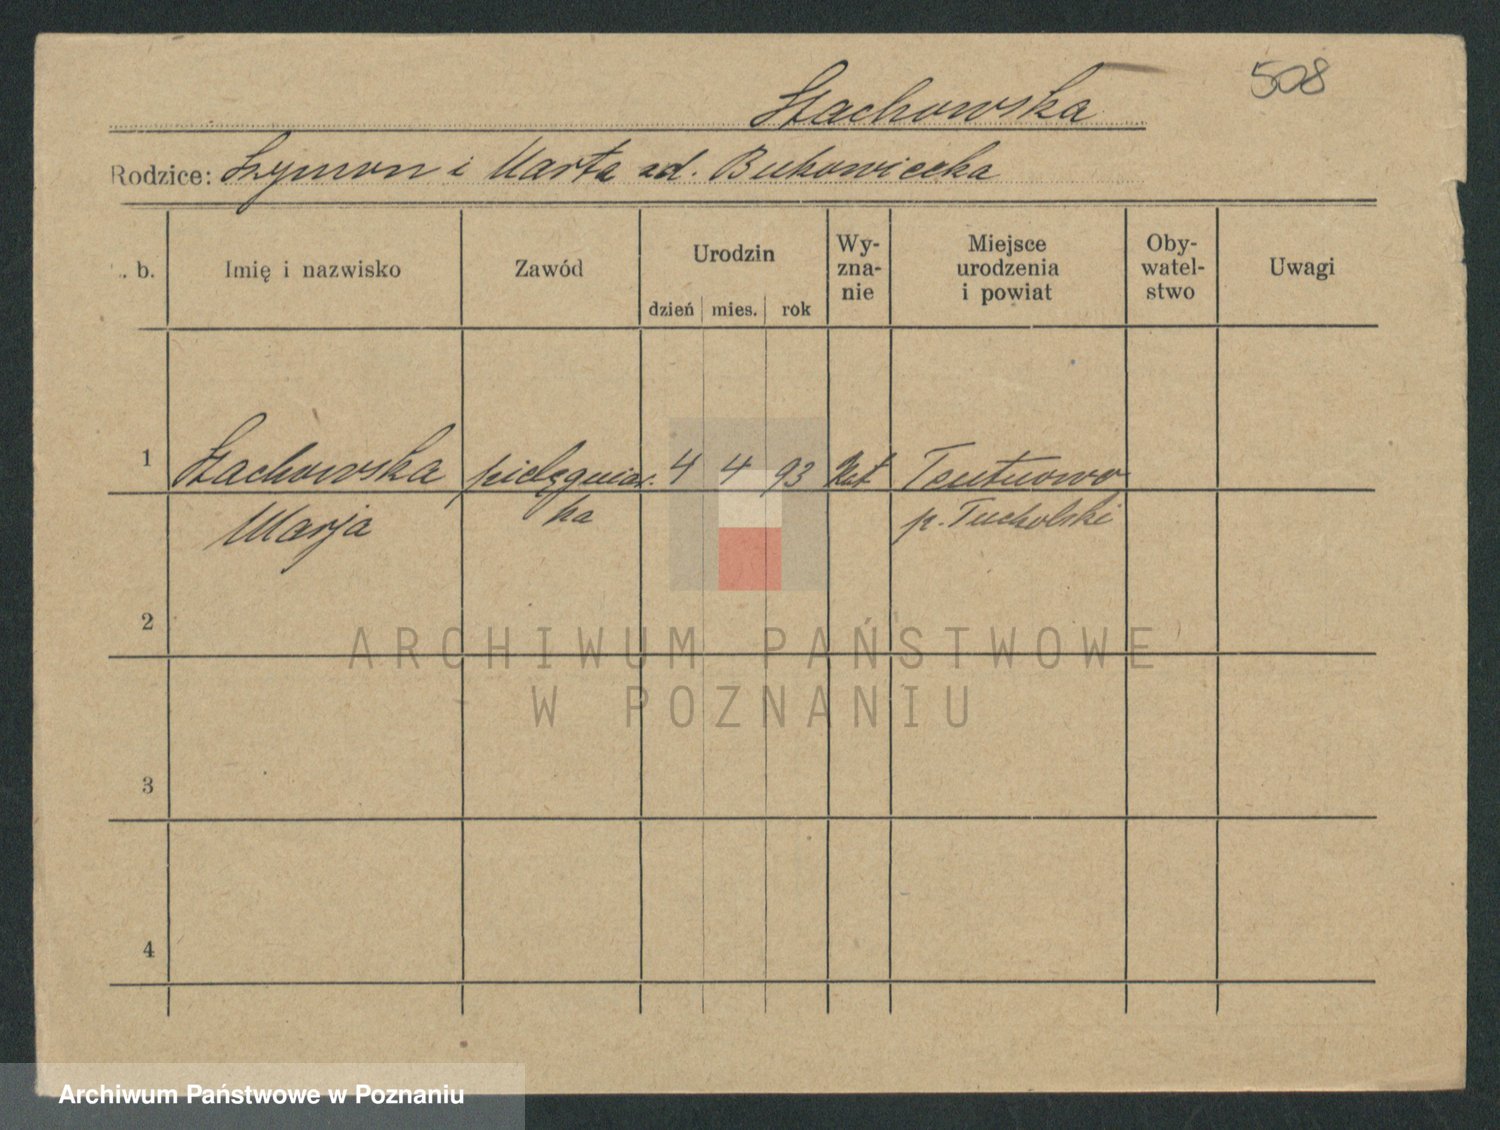 508
Stachowska
Rodzice: Szymon i Marta zd. Bukowiecka
. b.
Imię i nazwisko
Zawód
Urodzin
dzień mies. rok
Wy-
zna-
nie
Miejsce
urodzenia
i powiat
Oby-
watel-
stwo
Uwagi
1 Stachowska pielęgniar- 4 4 93 Kat
Marja ka p. Tucholski
2
3
4
ARCHIWUM PAŃSTWOWE
W POZNANIU
Archiwum Państwowe w Poznaniu